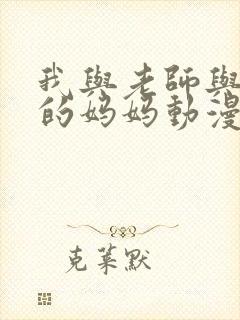 我與老師與
的妈妈動漫
克莱默